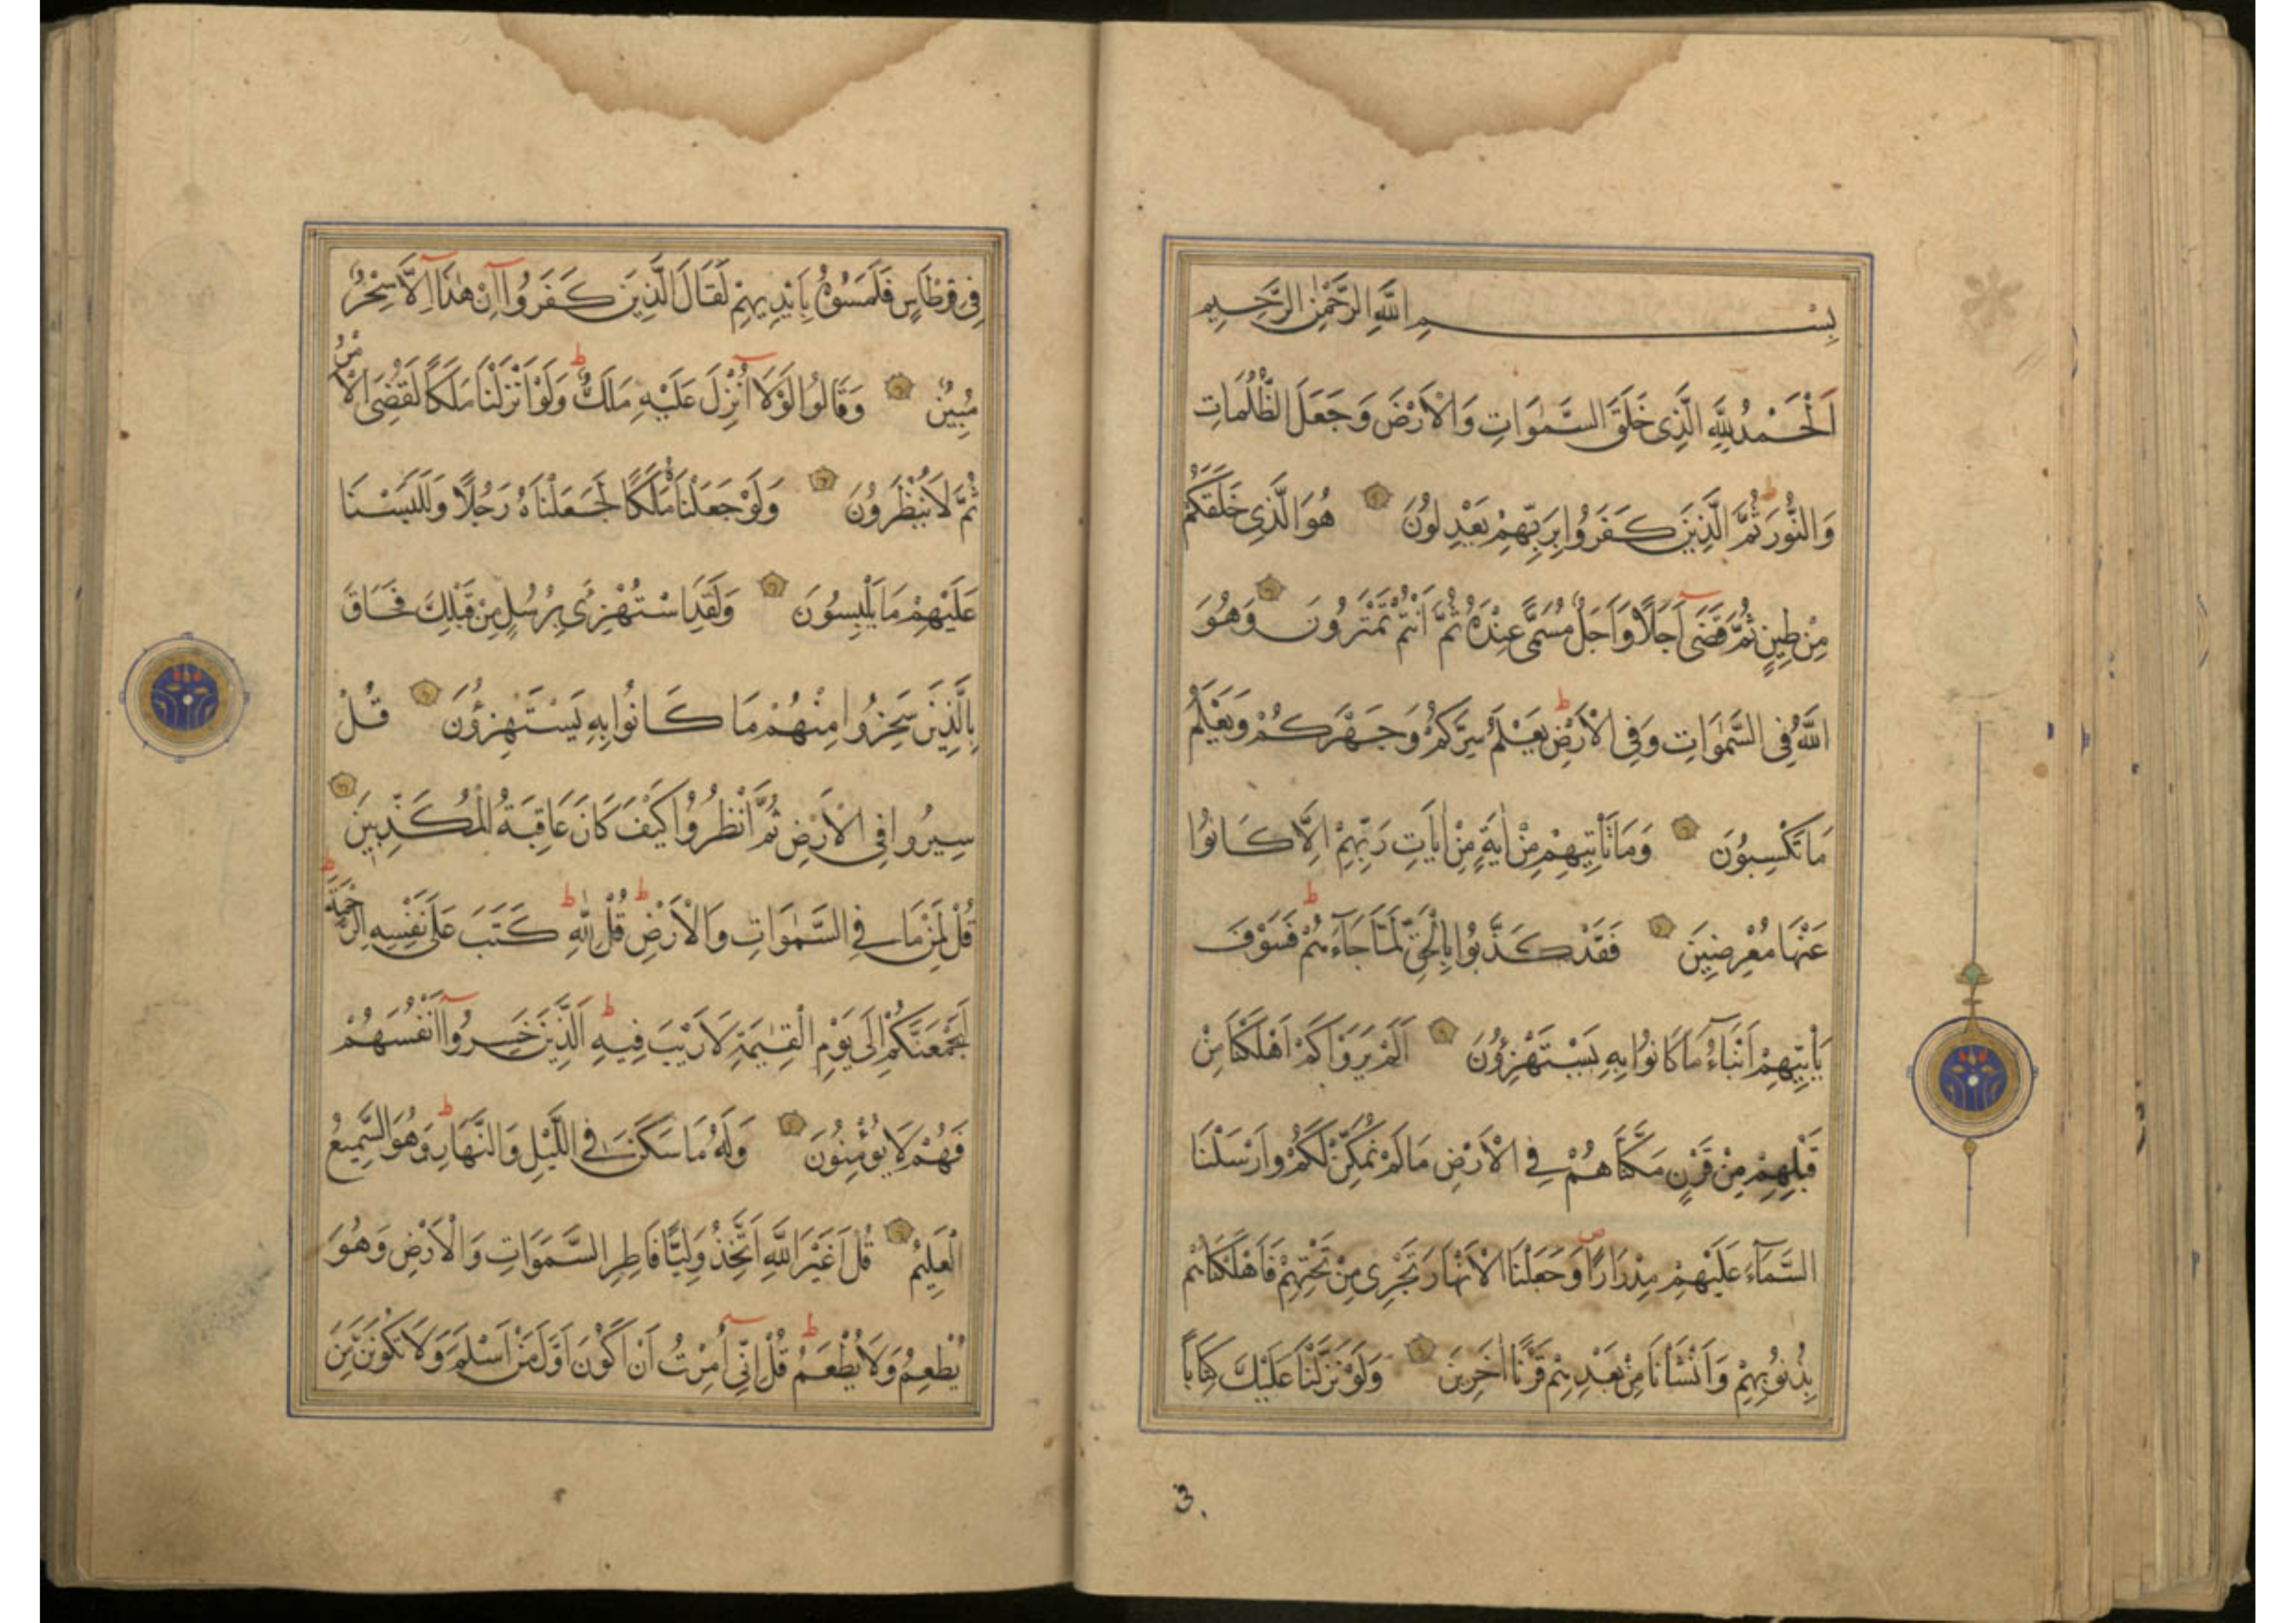 بِسْمِ اللَّهِ الرَّحْمٰنِ الرَّحِيمِ
اَلْحَمْدُ لِلَّهِ الَّذِى خَلَقَ السَّمٰوَاتِ وَالْاَرْضَ وَجَعَلَ الظُّلُمَاتِ
وَالنُّورَ ثُمَّ الَّذِينَ كَفَرُوا بِرَبِّهِمْ يَعْدِلُونَ هُوَ الَّذِى خَلَقَكُمْ
مِنْ طِينٍ ثُمَّ قَضَى اَجَلًا وَاَجَلٌ مُسَمًّى عِنْدَهُ ثُمَّ اَنْتُمْ تَمْتَرُونَ وَهُوَ
اللَّهُ فِى السَّمٰوَاتِ وَفِى الْاَرْضِ يَعْلَمُ سِرَّكُمْ وَجَهْرَكُمْ وَيَعْلَمُ
مَا تَكْسِبُونَ وَمَا تَاْتِيهِمْ مِنْ اٰيَةٍ مِنْ اٰيَاتِ رَبِّهِمْ اِلَّا كَانُوا
عَنْهَا مُعْرِضِينَ فَقَدْ كَذَّبُوا بِالْحَقِّ لَمَّا جَآءَهُمْ فَسَوْفَ
يَاْتِيهِمْ اَنْبَآءُ مَا كَانُوا بِهِ يَسْتَهْزِؤُنَ اَلَمْ يَرَوْا كَمْ اَهْلَكْنَا مِنْ
قَبْلِهِمْ مِنْ قَرْنٍ مَكَّنَّاهُمْ فِى الْاَرْضِ مَا لَمْ نُمَكِّنْ لَكُمْ وَاَرْسَلْنَا
السَّمَآءَ عَلَيْهِمْ مِدْرَارًا وَجَعَلْنَا الْاَنْهَارَ تَجْرِى مِنْ تَحْتِهِمْ فَاَهْلَكْنَاهُمْ
بِذُنُوبِهِمْ وَاَنْشَاْنَا مِنْ بَعْدِهِمْ قَرْنًا اٰخَرِينَ وَلَوْ نَزَّلْنَا عَلَيْكَ كِتَابًا
فِى قِرْطَاسٍ فَلَمَسُوهُ بِاَيْدِيهِمْ لَقَالَ الَّذِينَ كَفَرُوا اِنْ هٰذَا اِلَّا سِحْرٌ
مُبِينٌ وَقَالُوا لَوْلَا اُنْزِلَ عَلَيْهِ مَلَكٌ وَلَوْ اَنْزَلْنَا مَلَكًا لَقُضِىَ الْاَمْرُ
ثُمَّ لَا يُنْظَرُونَ وَلَوْ جَعَلْنَاهُ مَلَكًا لَجَعَلْنَاهُ رَجُلًا وَلَلَبَسْنَا
عَلَيْهِمْ مَا يَلْبِسُونَ وَلَقَدِ اسْتُهْزِئَ بِرُسُلٍ مِنْ قَبْلِكَ فَحَاقَ
بِالَّذِينَ سَخِرُوا مِنْهُمْ مَا كَانُوا بِهِ يَسْتَهْزِؤُنَ قُلْ
سِيرُوا فِى الْاَرْضِ ثُمَّ انْظُرُوا كَيْفَ كَانَ عَاقِبَةُ الْمُكَذِّبِينَ
قُلْ لِمَنْ مَا فِى السَّمٰوَاتِ وَالْاَرْضِ قُلْ لِلّٰهِ كَتَبَ عَلَى نَفْسِهِ الرَّحْمَةَ
لَيَجْمَعَنَّكُمْ اِلَى يَوْمِ الْقِيٰمَةِ لَا رَيْبَ فِيهِ اَلَّذِينَ خَسِرُوا اَنْفُسَهُمْ
فَهُمْ لَا يُؤْمِنُونَ وَلَهُ مَا سَكَنَ فِى اللَّيْلِ وَالنَّهَارِ وَهُوَ السَّمِيعُ
الْعَلِيمُ قُلْ اَغَيْرَ اللَّهِ اَتَّخِذُ وَلِيًّا فَاطِرِ السَّمَوَاتِ وَالْاَرْضِ وَهُوَ
يُطْعِمُ وَلَا يُطْعَمُ قُلْ اِنِّى اُمِرْتُ اَنْ اَكُونَ اَوَّلَ مَنْ اَسْلَمَ وَلَا تَكُونَنَّ مِنَ